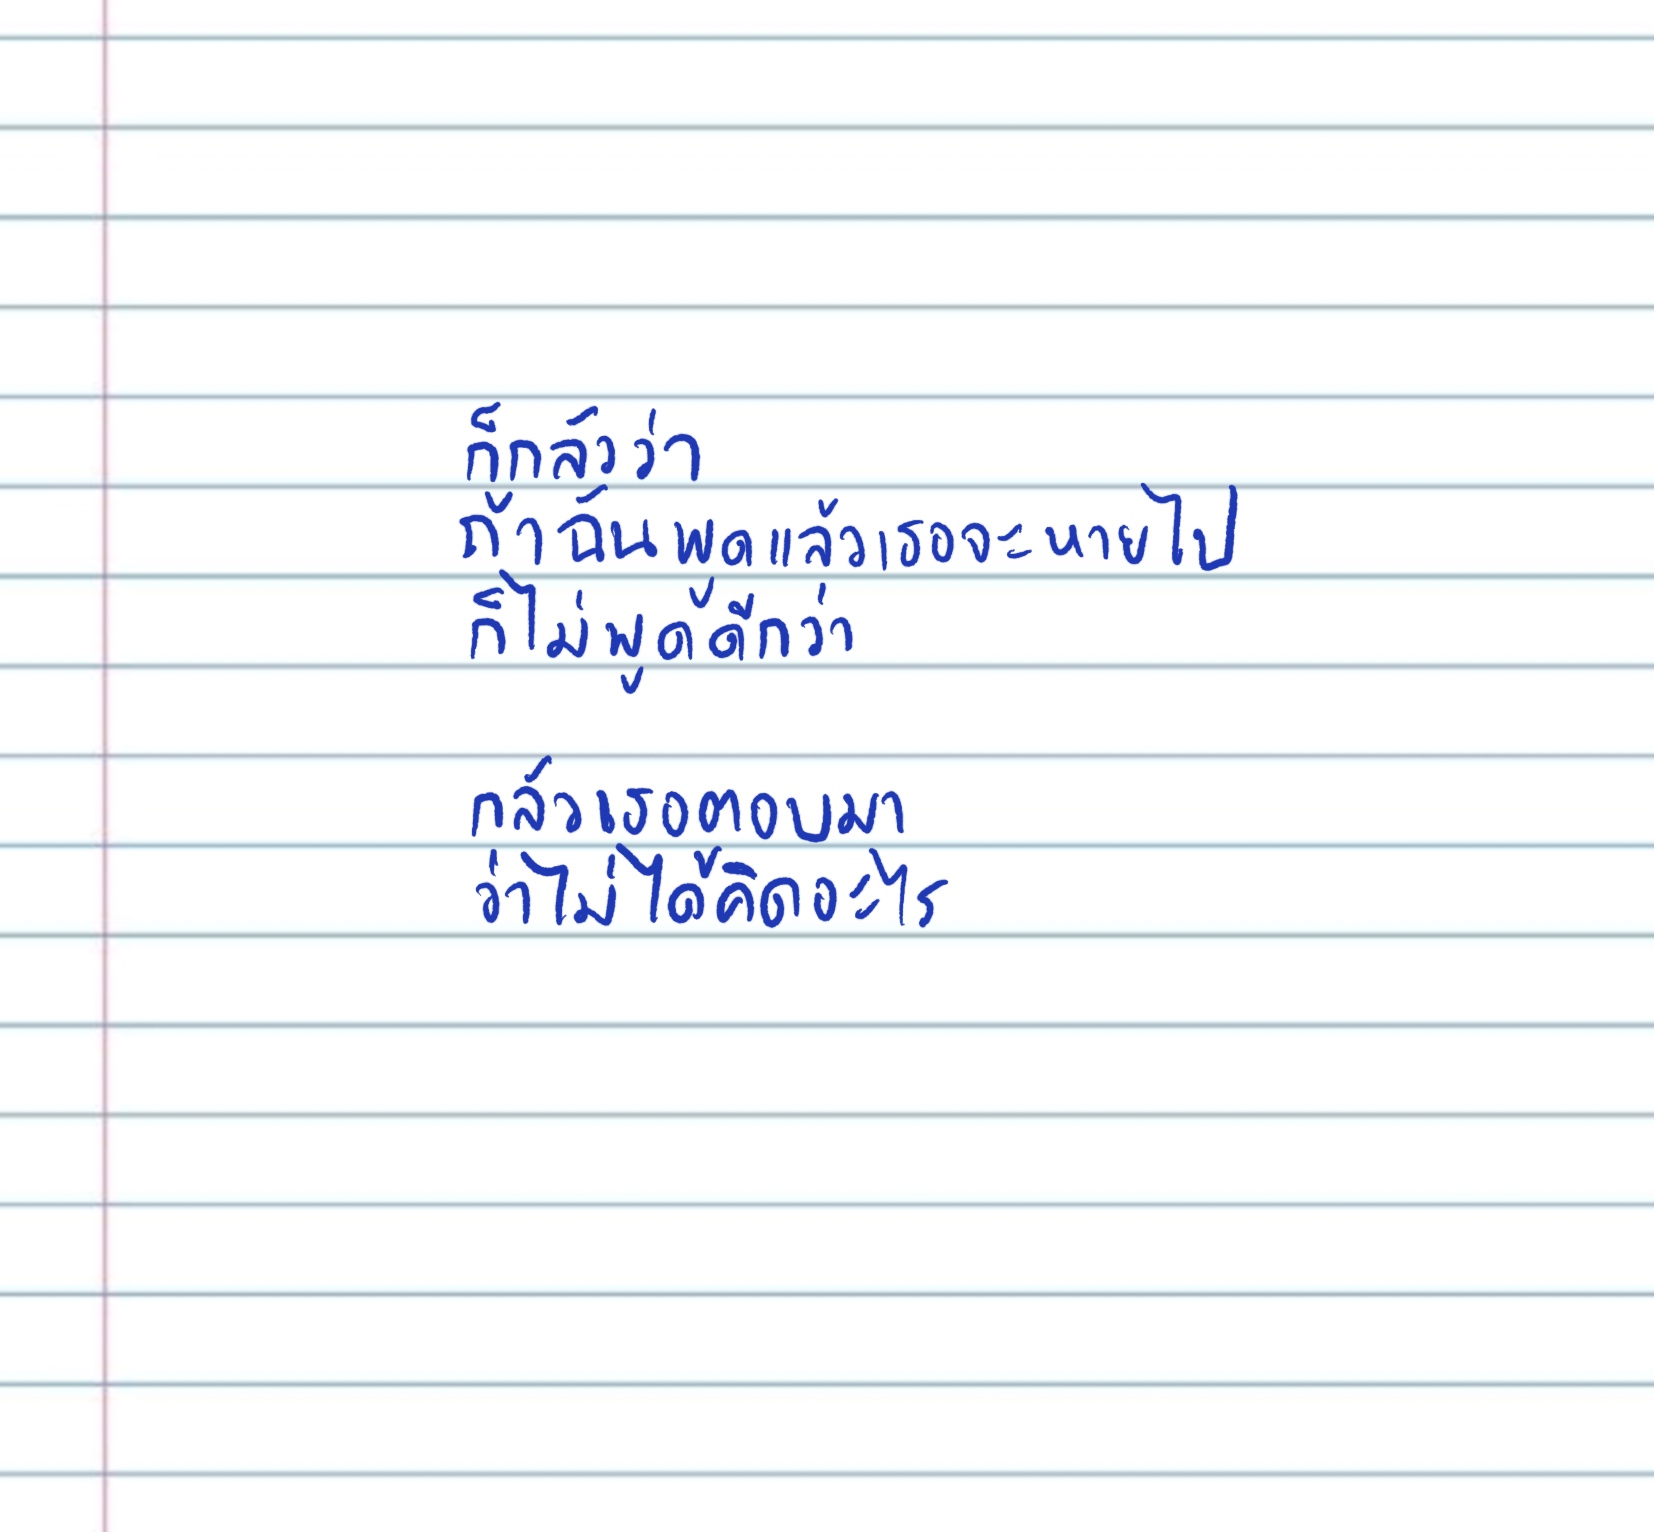 ก็กลัวว่า
ถ้าฉันพูดแล้วเธอจะหายไป
ก็ไม่พูดดีกว่า
กลัวเธอตอบมา
ว่าไม่ได้คิดอะไร